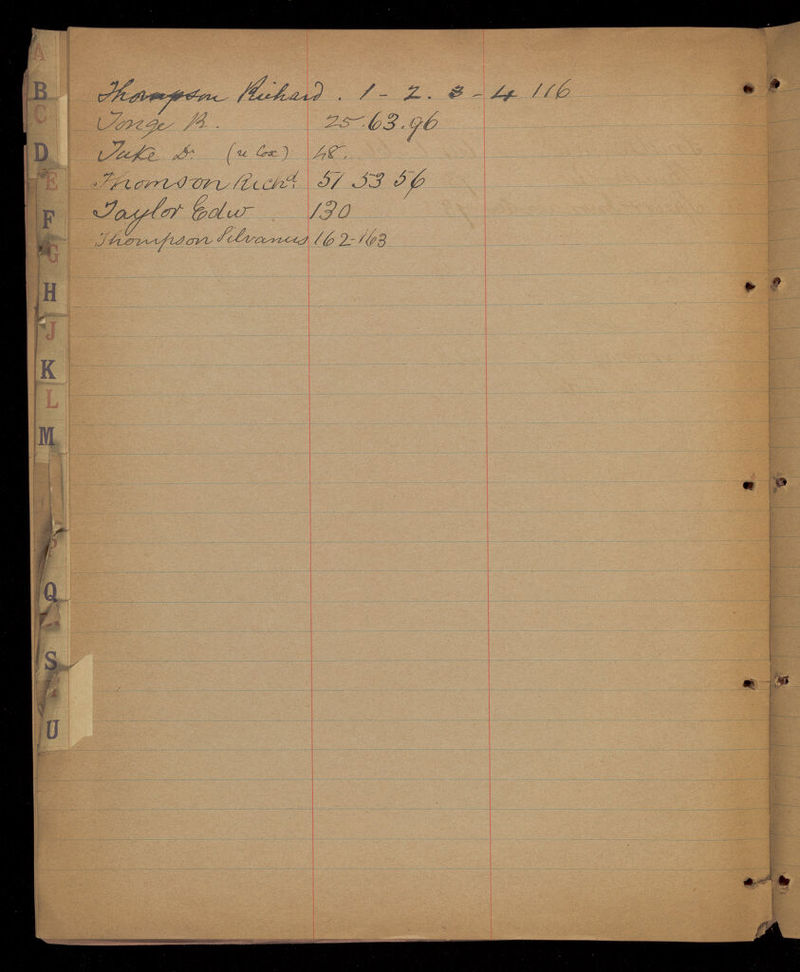 A
B
C
D
E
F
G
H
J
K
L
M
Q
S
U
Thompson Richard . 1 - 2 . 3 - 4 116
Tonge R . 25 . 63 . 96
Tuke Dr (re Cox) 48 .
Thomson Richd 51 53 56
Taylor Edw 130
Thompson Silvanus 162-163